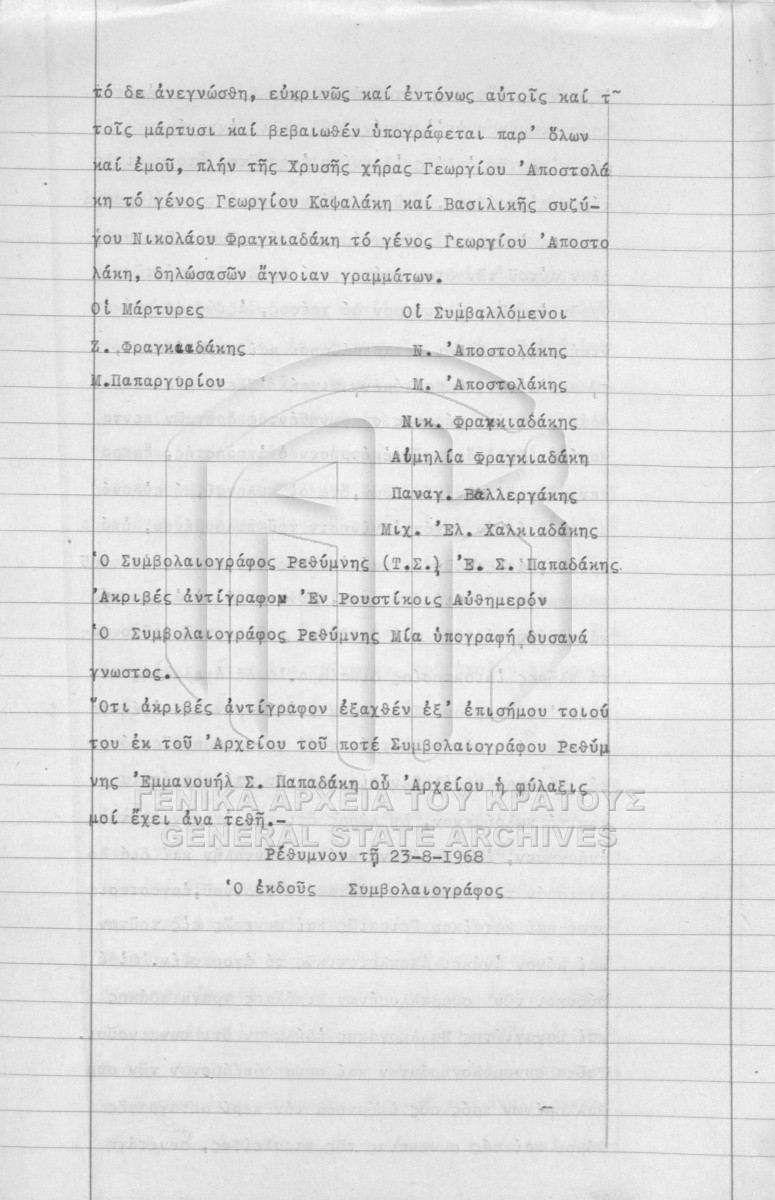 τό δε ἀνεγνώσθη, εὐκρινῶς καί ἐντόνως αὐτοῖς καί τ~
τοῖς μάρτυσι καί βεβαιωθέν ὑπογράφεται παρ' ὅλων
καί ἐμοῦ, πλήν τῆς Χρυσῆς χήρας Γεωργίου 'Αποστολά
κη τό γένος Γεωργίου Καψαλάκη καί Βασιλικῆς συζύ-
γου Νικολάου Φραγκιαδάκη τό γένος Γεωργίου 'Αποστο
λάκη, δηλώσασῶν ἄγνοιαν γραμμάτων.
Οἱ Μάρτυρες Οἱ Συμβαλλόμενοι
Ζ. Φραγκιαδάκης Ν. 'Αποστολάκης
Μ.Παπαργυρίου Μ. 'Αποστολάκης
Νικ. Φραγκιαδάκης
Αἰμηλία Φραγκιαδάκη
Παναγ. Βαλλεργάκης
Μιχ. 'Ελ. Χαλκιαδάκης
'Ο Συμβολαιογράφος Ρεθύμνης (Τ.Σ.) 'Ε. Σ. Παπαδάκης.
'Ακριβές ἀντίγραφον 'Εν Ρουστίκοις Αὐθημερόν
'Ο Συμβολαιογράφος Ρεθύμνης Μία ὑπογραφή δυσανά
γνωστος.
"Οτι ἀκριβές ἀντίγραφον ἐξαχθέν ἐξ' ἐπισήμου τοιού
του ἐκ τοῦ 'Αρχείου τοῦ ποτέ Συμβολαιογράφου Ρεθύμ
νης 'Εμμανουήλ Σ. Παπαδάκη οὗ 'Αρχείου ἡ φύλαξις
μοί ἔχει ἀνα τεθῆ.-
ΓΕΝΙΚΑ ΑΡΧΕΙΑ ΤΟΥ ΚΡΑΤΟΥΣ
GENERAL STATE ARCHIVES
Ρέθυμνον τῇ 23-8-1968
'Ο ἐκδούς Συμβολαιογράφος